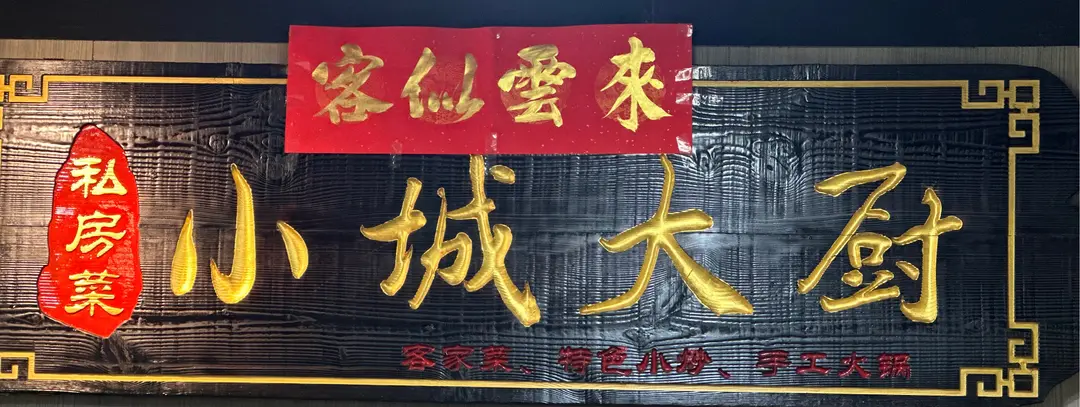 客似雲來
私房菜
小城大厨
客家菜、特色小炒、手工大锅